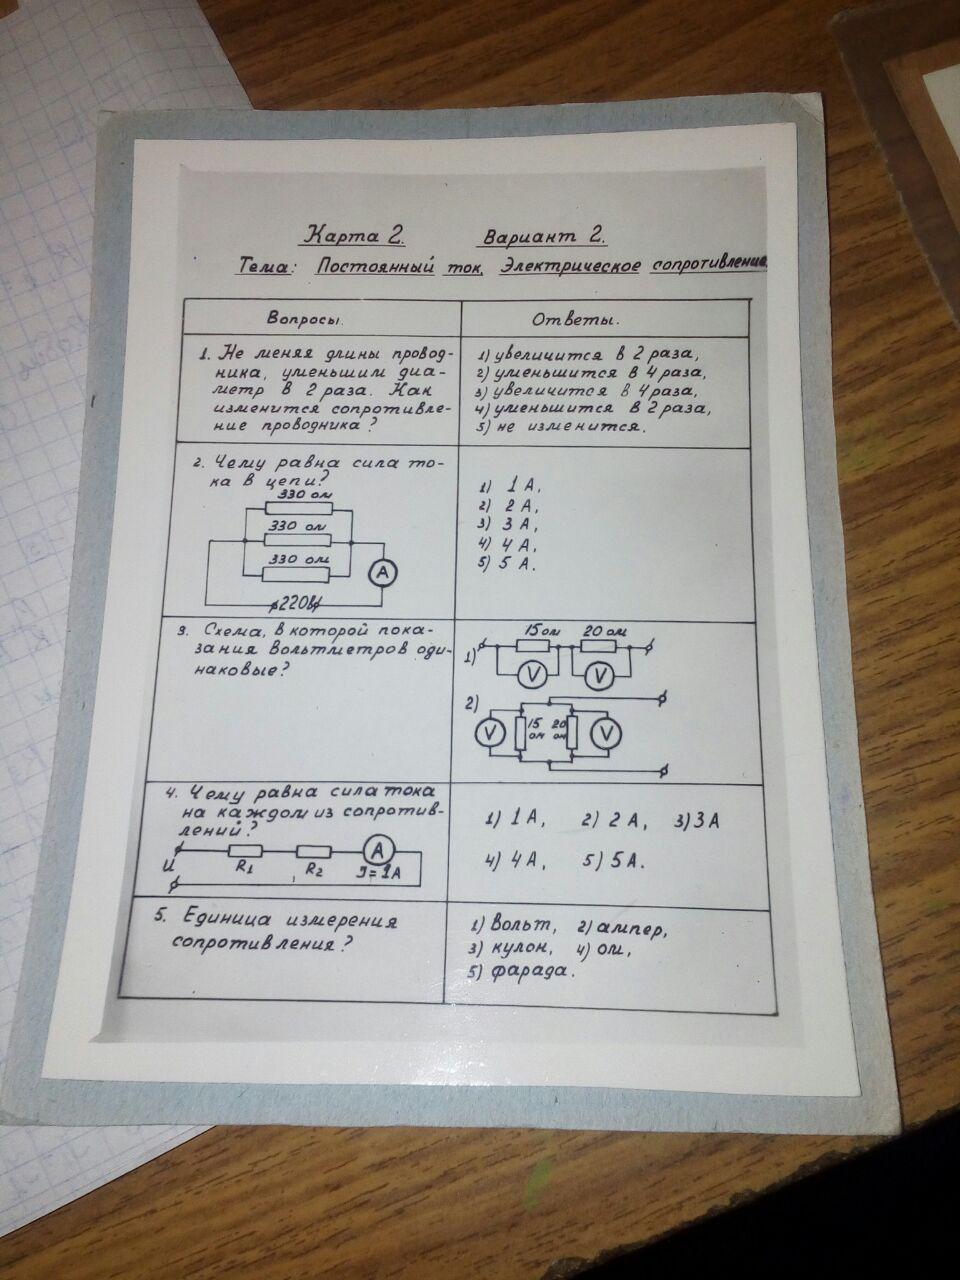 Карта 2. Вариант 2.
Тема: Постоянный ток. Электрическое сопротивление.
Вопросы.
Ответы.
1. Не меняя длины провод-
ника, уменьшим диа-
метр в 2 раза. Как
изменится сопротивле-
ние проводника?
1) увеличится в 2 раза,
2) уменьшится в 4 раза,
3) увеличится в 4 раза,
4) уменьшится в 2 раза,
5) не изменится.
2. Чему равна сила то-
ка в цепи?
330 ом
330 ом
330 ом
A
220в
1) 1 А,
2) 2 А,
3) 3 А,
4) 4 А,
5) 5 А.
3. Схема, в которой пока-
зания вольтметров оди-
наковые?
15 ом 20 ом
1)
V V
2)
V 15 ом 20 ом V
4. Чему равна сила тока
на каждом из сопротив-
лений?
U R1 R2 A
J = 1А
1) 1 А, 2) 2 А, 3) 3 А
4) 4 А, 5) 5 А.
5. Единица измерения
сопротивления?
1) Вольт, 2) ампер,
3) кулон, 4) ом,
5) фарада.